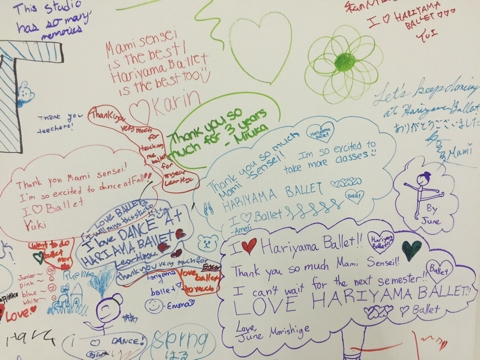 This studio
has so many
memories
Mami sensei
is the best!
Hariyama Ballet
is the best too!
Karin
I ♡ HARIYAMA
BALLET ♡♡♡
Yui
Thank you
teachers!
Thank you
very much
for
teaching me
ballet
Thank you so
much for 3 years
- Miuka
Let's keep dancing
at Hariyama Ballet
ありがとうございました
Mami
Thank you so much
Mami Sensei!
Im so excited to
take more classes
HARIYAMA BALLET
I ♡ Ballet
Thank you Mami Sensei!
I'm so excited to dance at Fall!
I ♡ Ballet
Yuki
I LOVE BALLET
I love DANCE AT
HARIYAMA BALLET
Thank you very much for
Hariyama
ballet
- Emma
I want to do
ballet
Junior
pink
blue
white
Love
love
ballet
so much
By
June
I ♥ Hariyama Ballet!!
Hariyama
Ballet
Thank you so much Mami Sensei!
I can't wait for the next semester!
Ballet
LOVE HARIYAMA BALLET!
♡ Ballet
Love,
June Morishige
I ♡ DANCE!
Spring